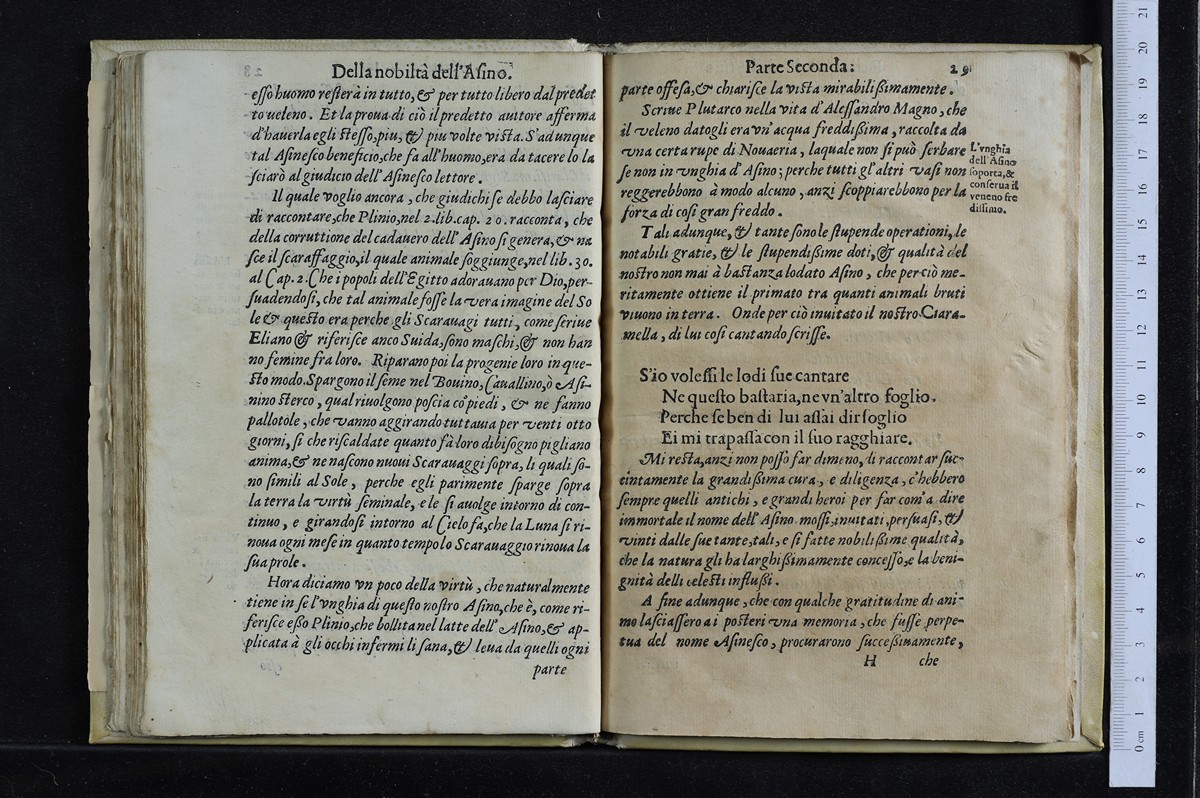 Della nobiltà dell'Asino.
esso huomo resterà in tutto, & per tutto libero dal predet
to ueleno. Et la proua di ciò il predetto auttore afferma
d'hauerla egli stesso, piu, & piu volte vista. S'adunque
tal Asinesco beneficio, che fa all'huomo, era da tacere lo la
sciarò al giudicio dell'Asinesco lettore.
Il quale voglio ancora, che giudichi se debbo lasciare
di raccontare, che Plinio, nel 2. lib. cap. 20. racconta, che
della corruttione del cadauero dell'Asino si genera, & na
sce il scaraffaggio, il quale animale soggiunge, nel lib. 30.
al Cap. 2. Che i popoli dell'Egitto adorauano per Dio, per-
suadendosi, che tal animale fosse la vera imagine del So
le & questo era perche gli Scarauagi tutti, come scriue
Eliano & riferisce anco Suida, sono maschi, & non han
no femine fra loro. Riparano poi la progenie loro in que-
sto modo. Spargono il seme nel Bouino, Cauallino, ò Asi-
nino sterco, qual riuolgono poscia cõ piedi, & ne fanno
pallotole, che vanno aggirando tuttauia per venti otto
giorni, si che riscaldate quanto fà loro di bisogno pigliano
anima, & ne nascono nuoui Scarauaggi sopra, li quali so-
no simili al Sole, perche egli parimente sparge sopra
la terra la virtù seminale, e le si auolge intorno di con-
tinuo, e girandosi intorno al Cielo fa, che la Luna si ri-
noua ogni mese in quanto tempo lo Scarauaggio rinoua la
sua prole.
Hora diciamo vn poco della virtù, che naturalmente
tiene in se l'vnghia di questo nostro Asino, che è, come ri-
ferisce esso Plinio, che bollita nel latte dell'Asino, & ap-
plicata à gli occhi infermi li sana, & leua da quelli ogni
parte
Parte Seconda:
29
parte offesa, & chiarisce la vista mirabilissimamente.
Scriue Plutarco nella vita d'Alessandro Magno, che
il veleno datogli era vn'acqua freddissima, raccolta da
vna certa rupe di Nouaeria, laquale non si può serbare
se non in vnghia d'Asino; perche tutti gl'altri vasi non
reggerebbono à modo alcuno, anzi scoppiarebbono per la
forza di cosi gran freddo.
L'vnghia
dell'Asino
soporta, &
conserua il
veneno fre
dissimo.
Tali adunque, & tante sono le stupende operationi, le
notabili gratie, & le stupendissime doti, & qualità del
nostro non mai à bastanza lodato Asino, che perciò me-
ritamente ottiene il primato tra quanti animali bruti
viuono in terra. Onde per ciò inuitato il nostro Ciara-
mella, di lui cosi cantando scrisse.
S'io volessi le lodi sue cantare
Ne questo bastaria, ne vn'altro foglio.
Perche se ben di lui assai dir soglio
Ei mi trapassa con il suo ragghiare.
Mi resta, anzi non posso far dimeno, di raccontar suc-
cintamente la grandissima cura, e diligenza, c'hebbero
sempre quelli antichi, e grandi heroi per far com'a dire
immortale il nome dell'Asino mossi, inuitati, persuasi, &
vinti dalle sue tante, tali, e si fatte nobilissime qualità,
che la natura gli ha larghissimamente concesso, e la beni-
gnità delli celesti influssi.
A fine adunque, che con qualche gratitudine di ani-
mo lasciassero ai posteri vna memoria, che fusse perpe-
tua del nome Asinesco, procurarono successiuamente,
H che